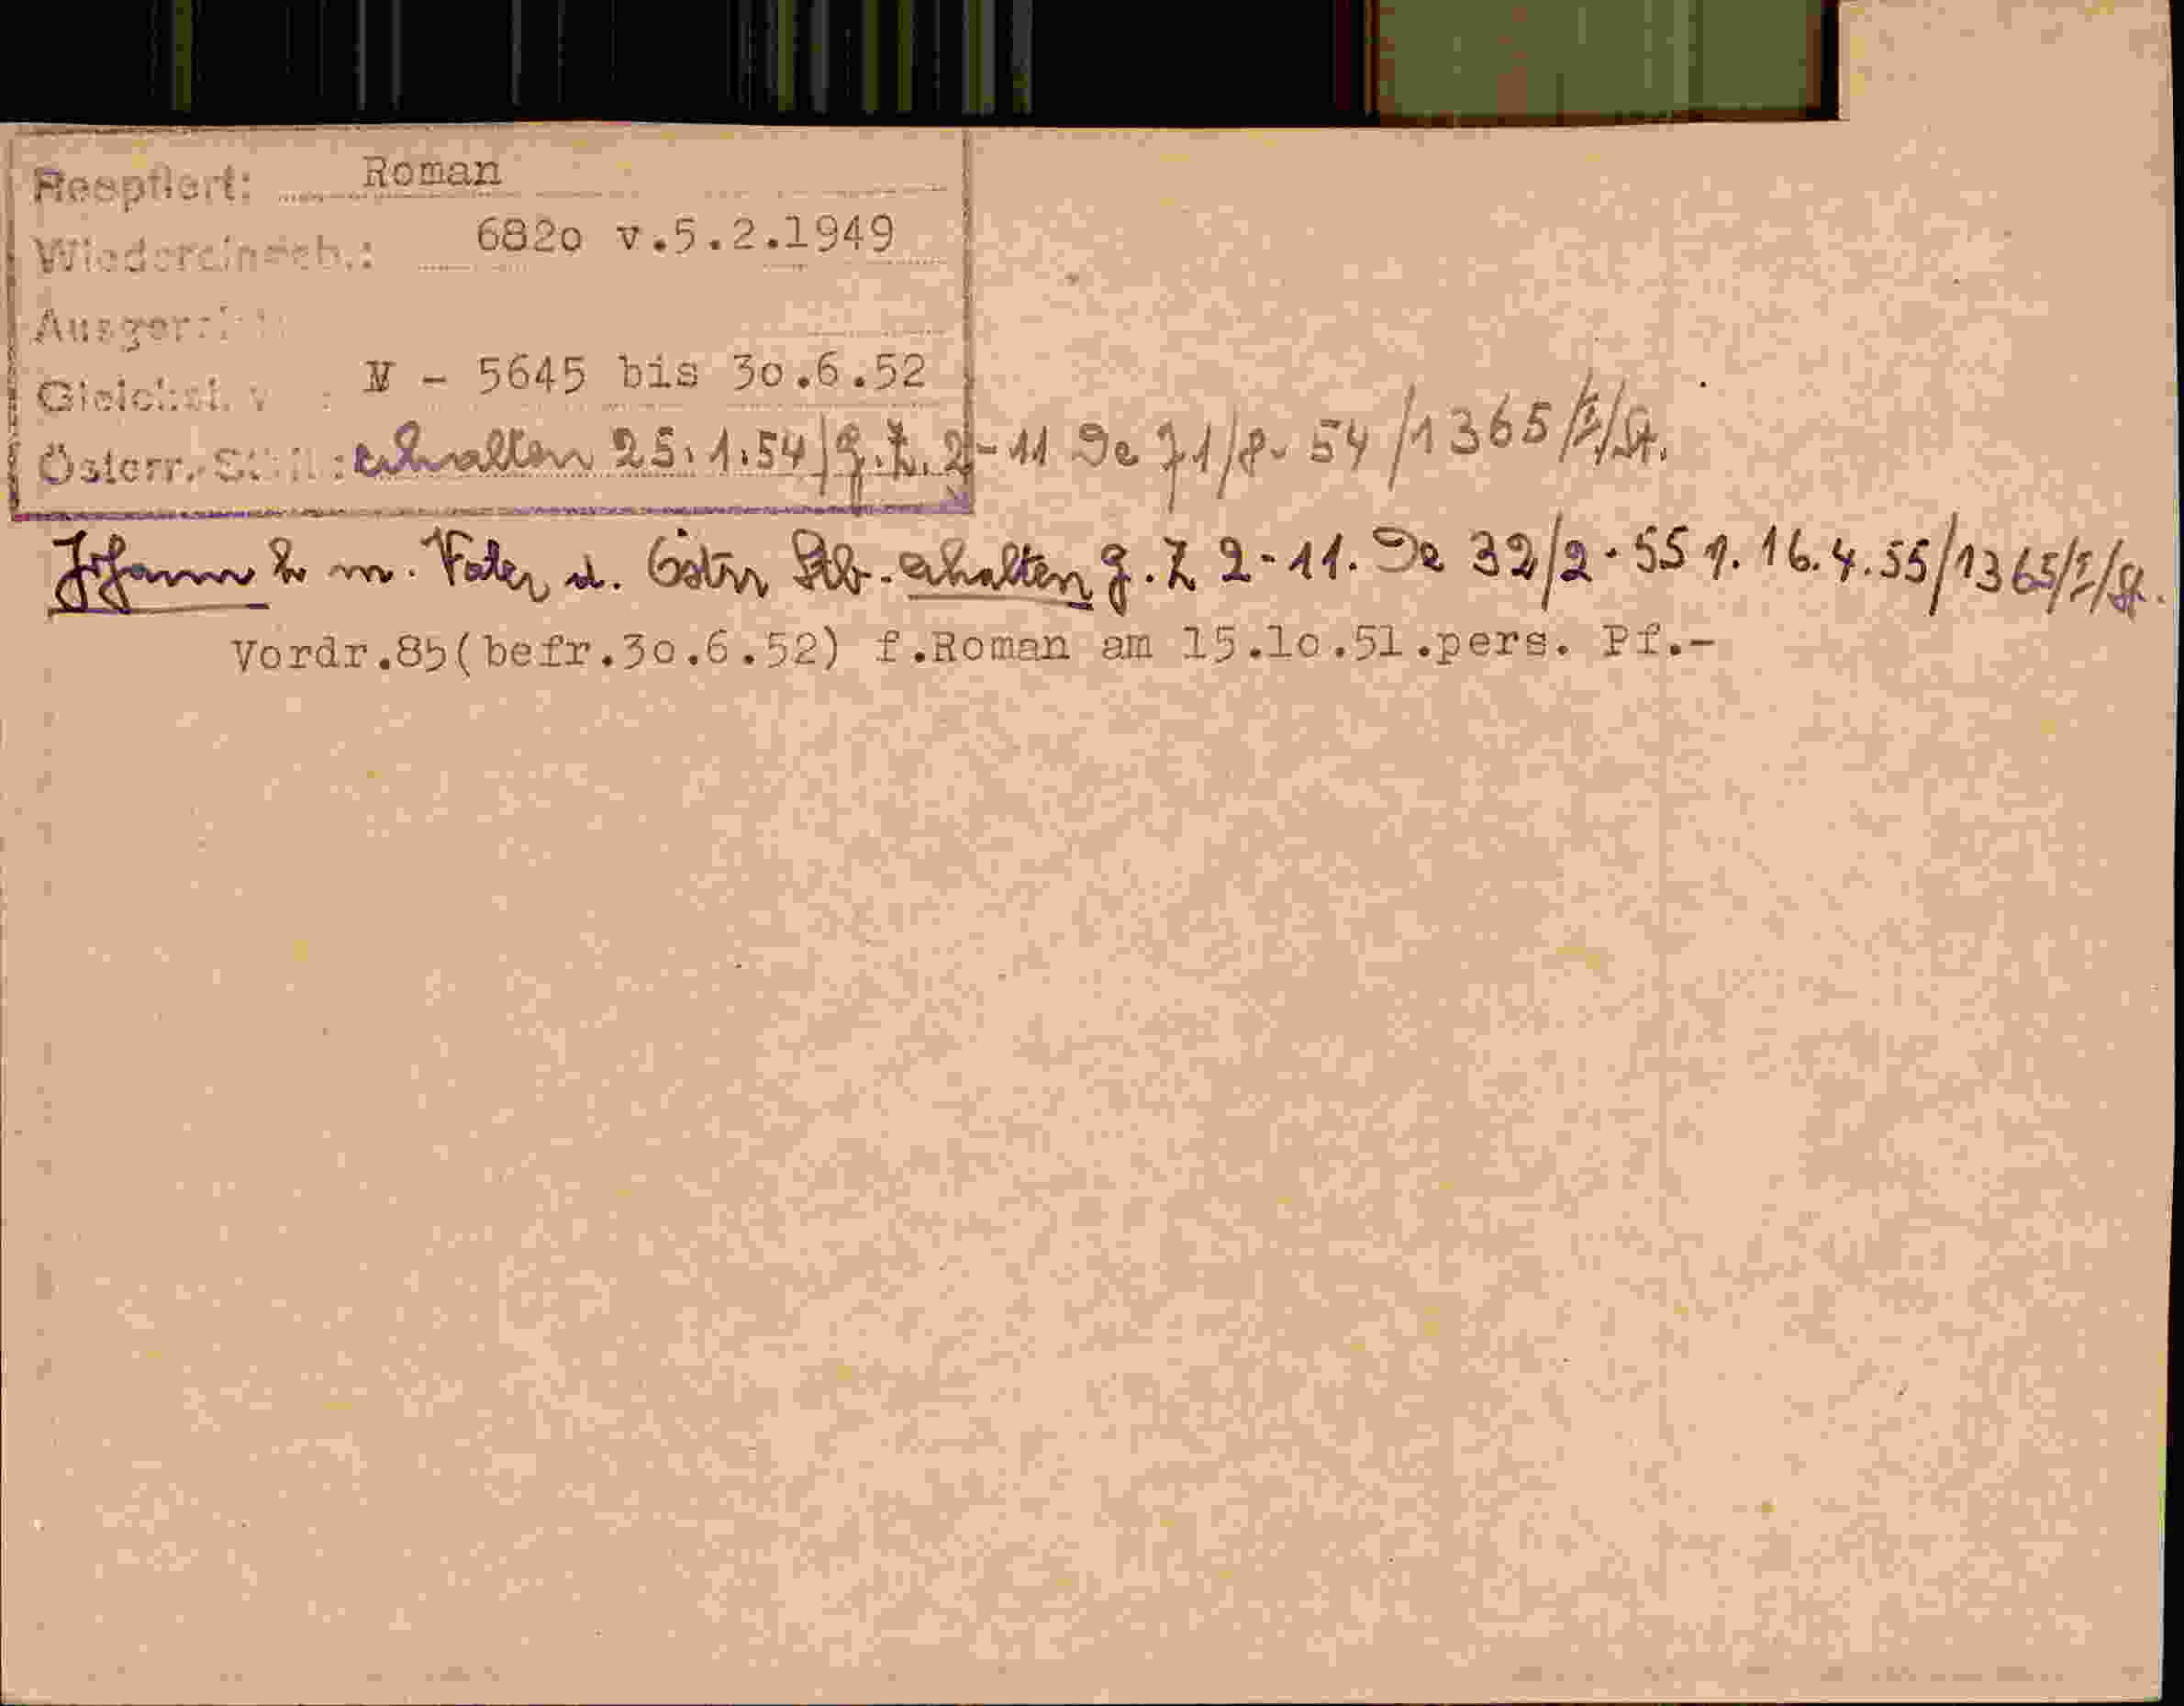 Reeptiert: Roman
Wiedereinseh.: 6820 v.5.2.1949
N - 5645 bis 30.6.52
Österr. erhalten 25.1.54/g.Z. 2-11 De 71/8-54/1365/I/St.
Johann m. Vater d. Östr Stb. erhalten g.Z 2-11. De 32/2-55 16.4.55/1365/I/St.
Vordr.85(befr.30.6.52) f.Roman am 15.10.51.pers. Pf.-